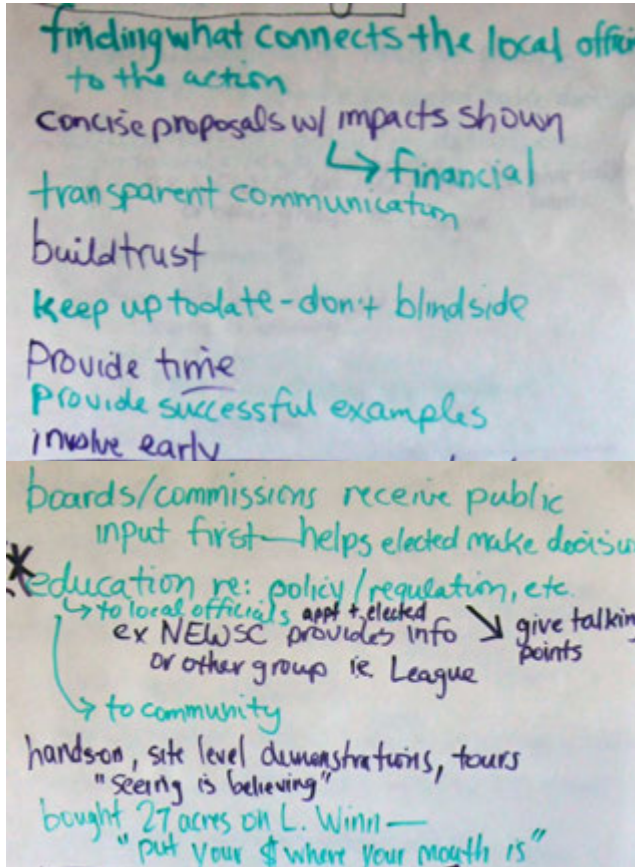 finding what connects the local offici
to the action
concise proposals w/ impacts shown
↳ financial
transparent communication
build trust
keep up to date - don't blindside
Provide time
Provide successful examples
involve early
boards/commissions receive public
input first — helps elected make decisio
* education re: policy/regulation, etc.
↳ to local officials appt + elected
ex NEWSC provides info ↘ give talking
or other group ie. League points
↳ to community
hands-on, site level demonstrations, tours
"seeing is believing"
bought 27 acres on L. Winn —
"put your $ where your mouth is"